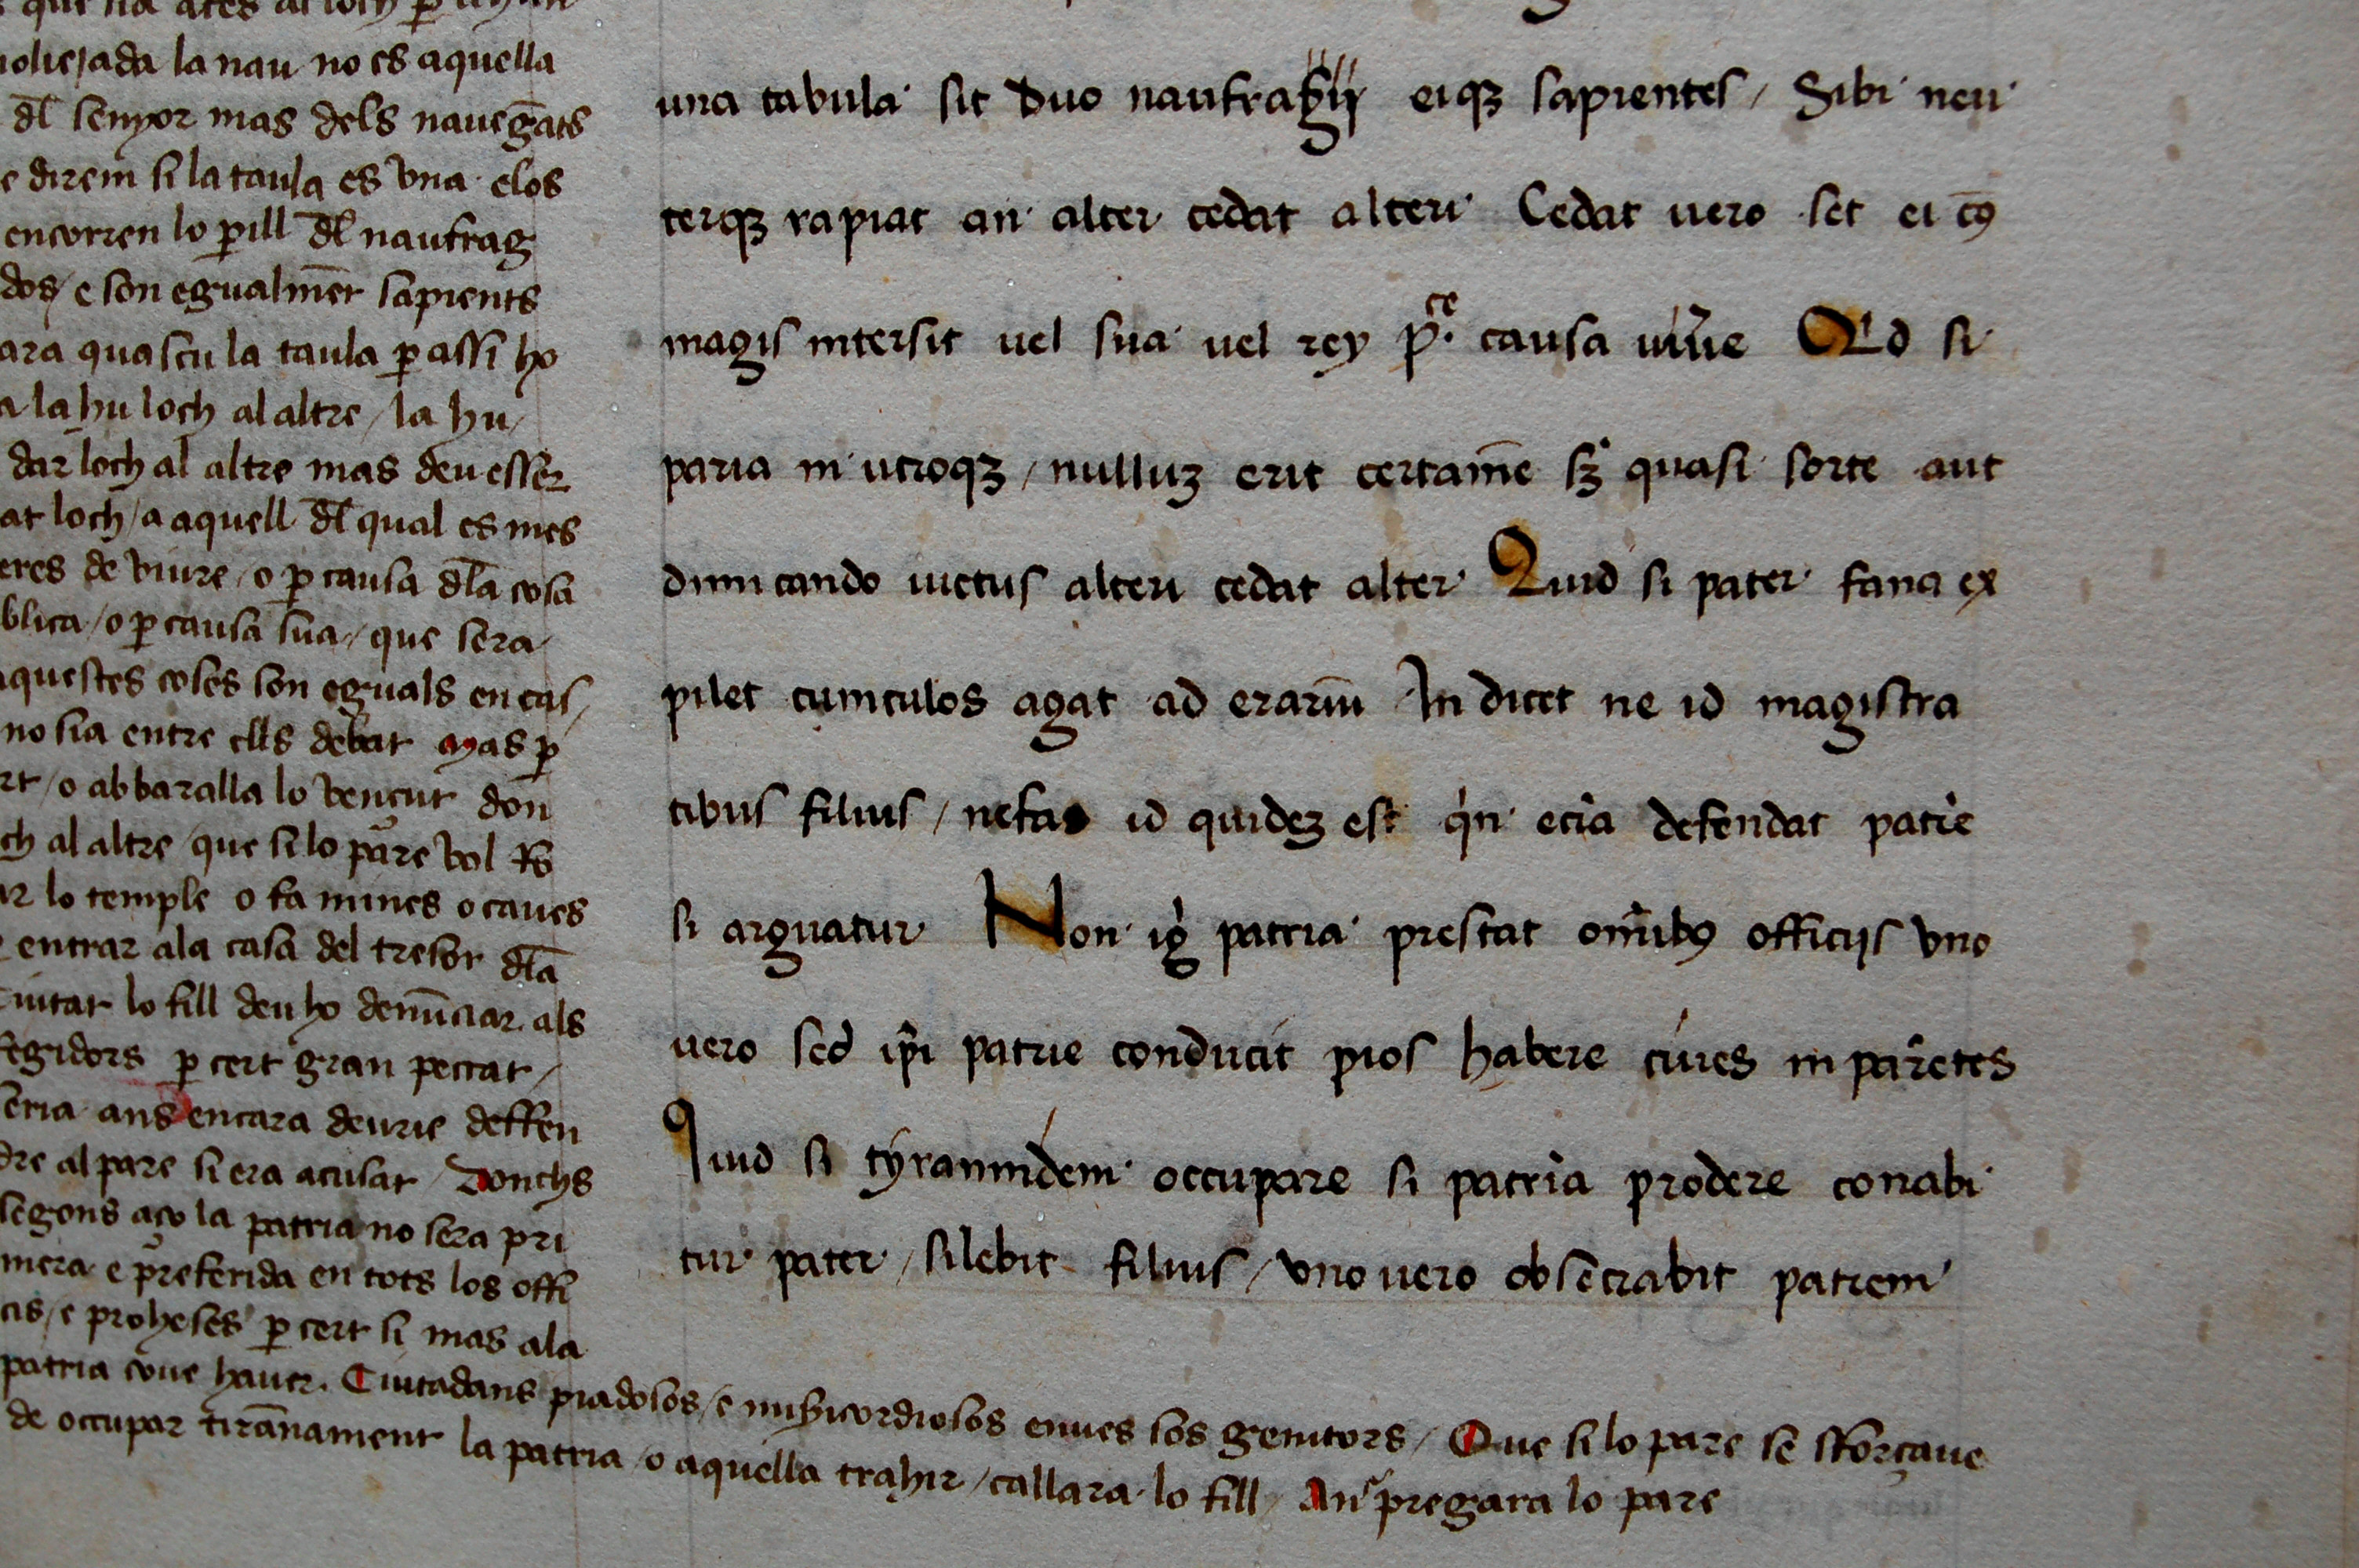 noliejada la nau no es aquella
dl̄ senyor mas dels naueḡats
e direm si la taula es vna elos
encorren lo ꝑill dl̄ naufrag
dos / e son egualmēt sapients
ara quascu la taula ꝑ assi ho
a la hu loch al altre / la hu /
dar loch al altre mas deu esser
at loch / a aquell dl̄ qual es mes
eres de viure / o ꝑ causa dl̄a cosa
blica / o ꝑ causa sua / que sera
aquestes coses son eguals en cas /
no sia entre ells debat mas ꝑ
rt / o ab baralla lo vençut don
ch al altre / que si lo pare vol
ar lo temple o fa mines o caues
entrar ala casa del tresor dl̄a
Ciutat lo fill deu ho denūciar als
regidors ꝑ cert gran peccat /
seria ans encara deurie deffen
dre al pare si era acusat / Donchs
segons aço la patria no sera pri
mera e preferida en tots los offi
cis / e proheses ꝑ cert si mas ala
patria coue hauer. Ciutadans piadosos / e misicordiosos enues sos genitors / Que si lo pare se sforçaue
de occupar tirānament la patria / o aquella trahir / callara lo fill / Ans pregara lo pare
una tabula sit duo naufragij eiqꝫ sapientes / Sibi neu
terqꝫ rapiat an alter cedat alteri Cedat uero set ei cꝰ
magis intersit uel sua uel rey p.ce causa uiuē Qid si
paria in utroqꝫ / nulluꝫ erit certamē sꝫ quasi sorte aut
dimicando uictus alteri cedat alter Quid si pater fana ex
pilet cuniculos agat ad erariū Indicet ne id magistra
tibus filius / nefas id quideꝫ est qin eciā defendat patrē
si arguatur Non ig̍ patria prestat omībꝰ officijs vno
uero sed ip̄i patrie conducit pios habere ciues in parētes
Quid si tyrannidem occupare si patriā prodere conabi
tur pater / silebit filius / vno uero obsecrabit patrem